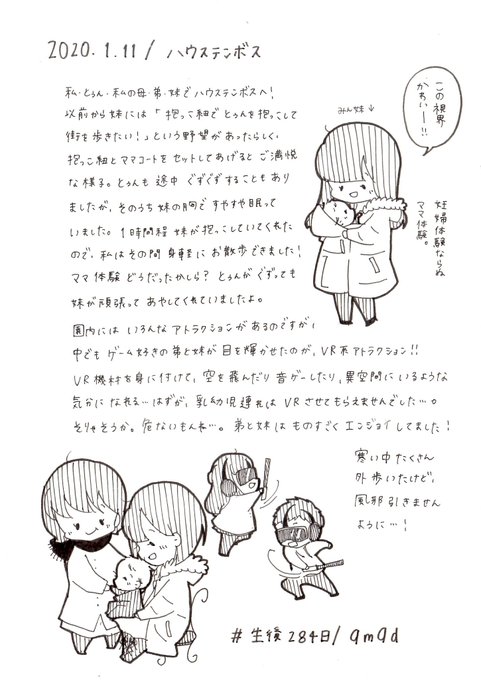 2020.1.11/ ハウステンボス
私・とぅん・私の母・弟・妹でハウステンボスへ!
以前から妹には「抱っこ紐でとぅんを抱っこして
街を歩きたい!」という野望があったらしく、
抱っこ紐とママコートをセットしてあげるとご満悦
な様子。とぅんも途中ぐずぐずすることもあり
ましたが、そのうち妹の胸ですやすや眠って
いました。1時間程妹が抱っこしていてくれた
ので、私はその間身軽にお散歩できました!
ママ体験どうだったかしら?とぅんがぐずっても
妹が頑張ってあやしてくれていましたよ。
みん妹↓
この視界
かわいー!!
妊婦体験ならぬ
ママ体験。
園内にはいろんなアトラクションがあるのですが、
中でもゲーム好きの弟と妹が目を輝かせたのが、VR系アトラクション!!
VR機材を身に付けて、空を飛んだり音ゲーしたり、異空間にいるような
気分になれる…はずが、乳幼児連れはVRさせてもらえませんでした…。
そりゃそうか。危ないもんね…。弟と妹はものすごくエンジョイしてました!
寒い中たくさん
外歩いたけど、
風邪引きません
ように…!
#生後284日/9m9d